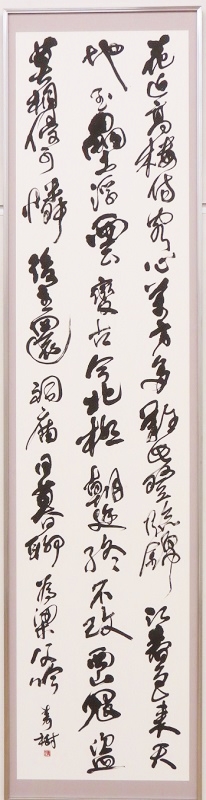 花近高楼傷客心万方多難此登臨錦江春色来天
地玉壘浮雲變古今北極朝廷終不改西山寇盗
莫相侵可憐後主還祠廟日暮聊為梁父吟